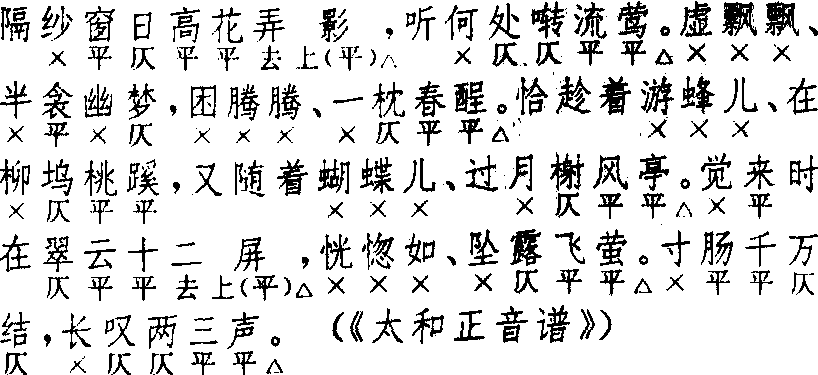 隔纱窗日高花弄影，听何处啭流莺。虚飘飘、
×平仄平平去上(平)△ ×仄仄平平△×××
半衾幽梦，困腾腾、一枕春酲。恰趁着游蜂儿、在
×平×仄×××× 仄平平△×××
柳坞桃蹊，又随着蝴蝶儿、过月榭风亭。觉来时
×仄平平×××× 仄平平△×平
在翠云十二屏，恍惚如、坠露飞萤。寸肠千万
仄平平去上(平)△×××× 仄平平△×平平仄
结，长叹两三声。（《太和正音谱》）
仄×仄仄平平△